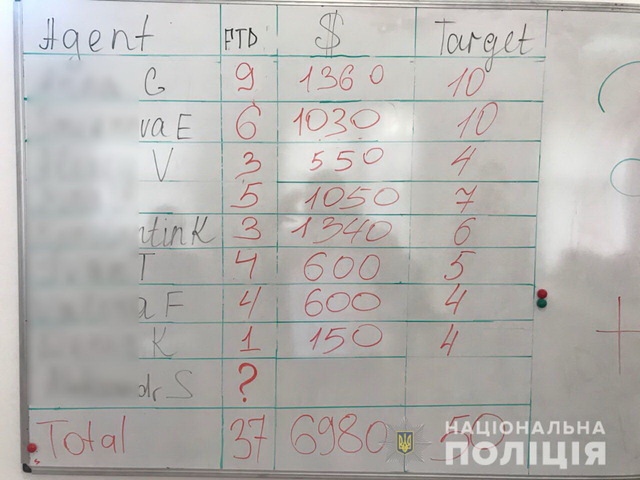 Agent FTD $ Target
G 9 1360 10
va E 6 1030 10
V 3 550 4
5 1050 7
ntin K 3 1340 6
T 4 600 5
a F 4 600 4
K 1 150 4
dr S ?
Total 37 6980 50
НАЦІОНАЛЬНА
ПОЛІЦІЯ